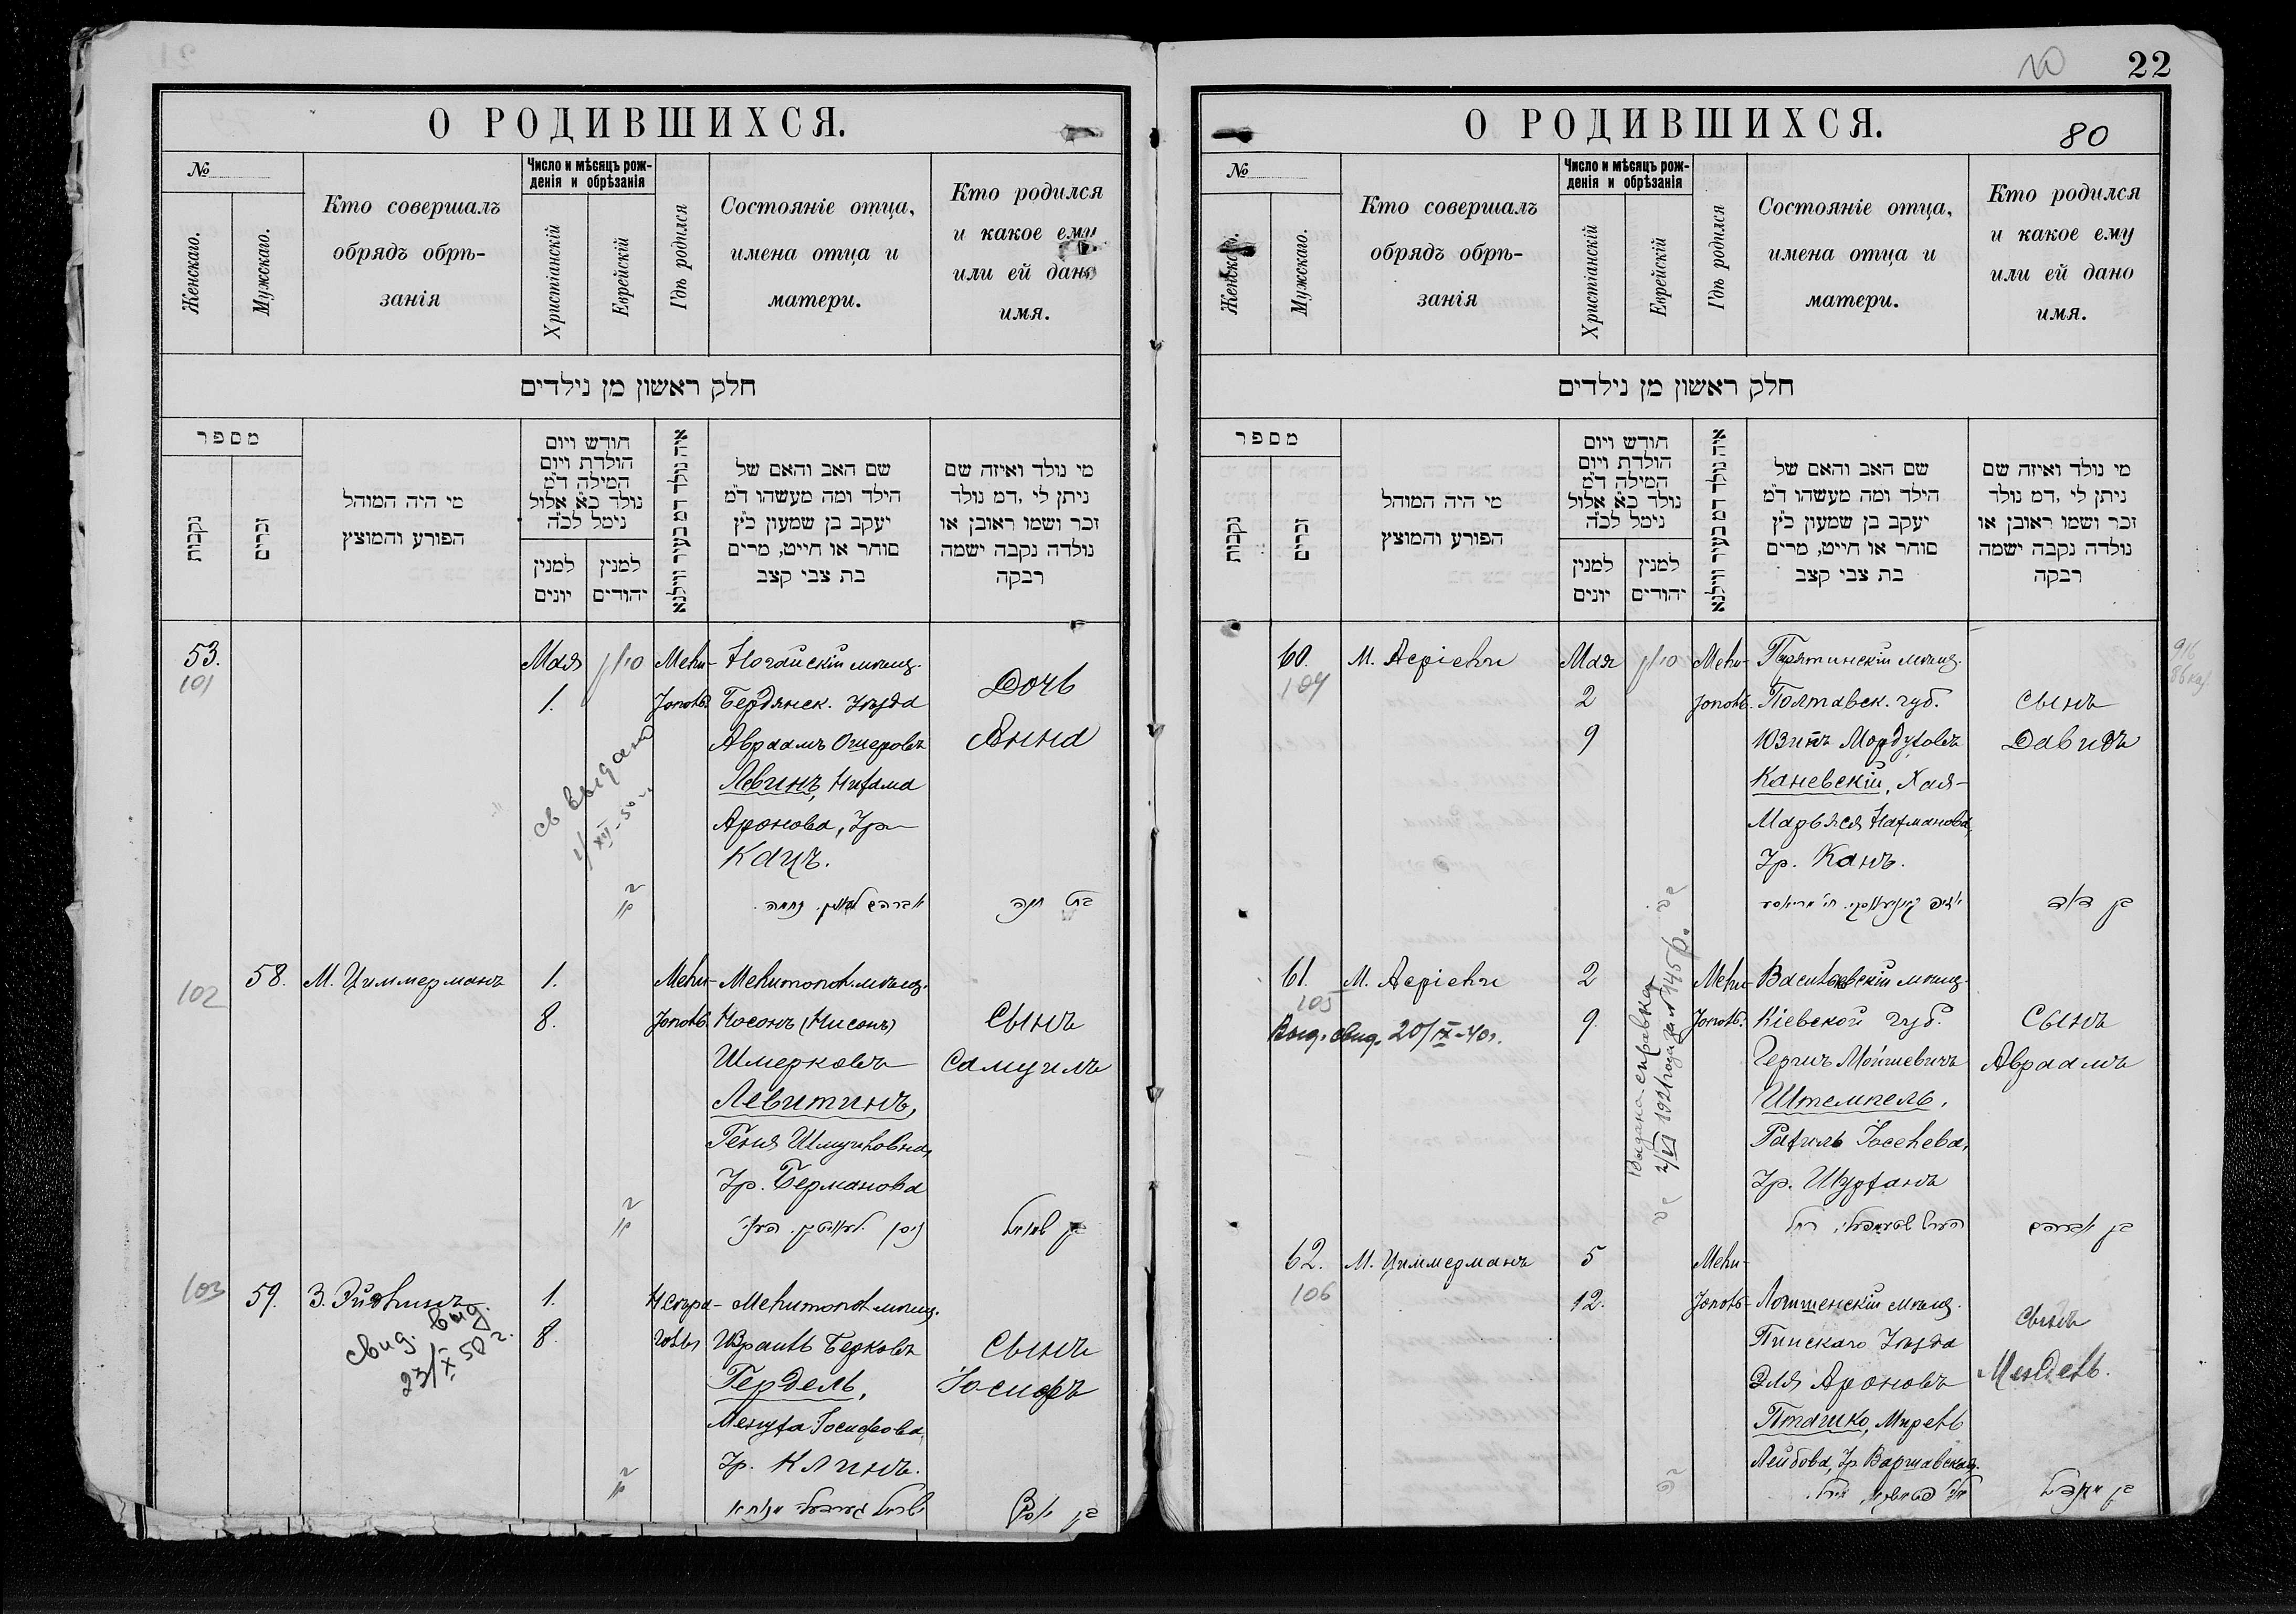 О РОДИВШИХСЯ.
№
Женскаго.
Мужскаго.
Кто совершалъ
обрядъ обрѣ-
занія
Число и мѣсяцъ рож-
денія и обрѣзанія
Христіанскій
Еврейскій
Гдѣ родился
Состояніе отца,
имена отца и
матери.
Кто родился
и какое ему
или ей дано
имя.
חלק ראשון מן נילדים
מספר
נקבות
זכרים
מי היה המוהל
הפורע והמוצץ
חודש ויום
הולדת ויום
המילה ד״מ
נולד כ״א אלול
נימל לכ״ה
למנין
יונים
למנין
יהודים
איה נולד דמ בעיר ווילנא
שם האב והאם של
הילד ומה מעשהו ד״מ
יעקב בן שמעון כ״ץ
סוחר או חייט, מרים
בת צבי קצב
מי נולד ואיזה שם
ניתן לי, דמ נולד
זכר ושמו ראובן או
נולדה נקבה ישמה
רבקה
53.
101
Мая
1.
Мели-
тополь.
Ногайскій мѣщ.
Бердянск. уѣзда
Авраамъ Ошеровъ
Левинъ, Нихама
Аронова, ур.
Кацъ.
Дочь
Анна
св выдано
1/XII-50 г.
אברהם לעווין. נחמה
בת חנה
102
58.
М. Циммерманъ
1.
8.
Мели-
тополь.
Мелитопол. мѣщ.
Носонъ (Нисонъ)
Шмерковъ
Левитинъ,
Геня Шмуиловна,
ур. Берманова
Сынъ
Самуилъ
בן שמואל
103
59.
1.
8.
Мелитопол мѣщ.
Израиль Берковъ
Гердель,
Менуха Іосифова,
ур. Клинъ.
Сынъ
Іосифъ
свид. выд.
23/X 50 г.
בן יוסף
22
О РОДИВШИХСЯ.
80
№
Женскаго.
Мужскаго.
Кто совершалъ
обрядъ обрѣ-
занія
Число и мѣсяцъ рож-
денія и обрѣзанія
Христіанскій
Еврейскій
Гдѣ родился
Состояніе отца,
имена отца и
матери.
Кто родился
и какое ему
или ей дано
имя.
חלק ראשון מן נילדים
מספר
נקבות
זכרים
מי היה המוהל
הפורע והמוצץ
חודש ויום
הולדת ויום
המילה ד״מ
נולד כ״א אלול
נימל לכ״ה
למנין
יונים
למנין
יהודים
איה נולד דמ בעיר ווילנא
שם האב והאם של
הילד ומה מעשהו ד״מ
יעקב בן שמעון כ״ץ
סוחר או חייט, מרים
בת צבי קצב
מי נולד ואיזה שם
ניתן לי, דמ נולד
זכר ושמו ראובן או
נולדה נקבה ישמה
רבקה
60.
104
М.
Мая
2
9
Мели-
тополь.
Пирятинскій мѣщ.
Полтавск. губ.
Мордуховъ
Каневскій, Хая-
Марьяся Нахманова,
ур. Канъ.
Сынъ
Давидъ
בן דוד
61.
105
М.
2
9.
Мели-
тополь.
Васильковскій мѣщ.
Кіевской губ.
Гершъ Мойшевичъ
Штемпель,
Рахиль Іоселева,
ур.
Сынъ
Авраамъ
Выд. свид. 20/IX-40г.
Выдана справка
2/VI 1921 года за № 145
בן אברהם
62.
106
М. Циммерманъ
5
12.
Мели-
тополь-
Логишенскій мѣщ.
Пинскаго уѣзда
Эля Ароновъ
Пташко, Мирель
Лейбова, ур Варшавская.
Сынъ
Мендель.